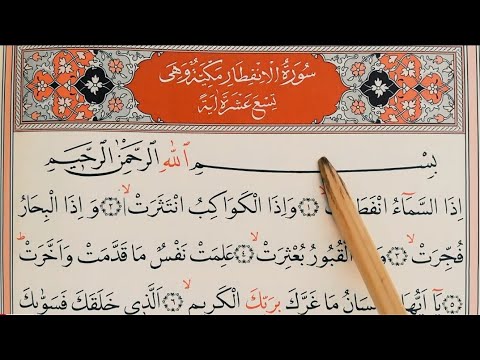 سُورَةُ الْاِنْفِطَارِ مَكِّيَّةٌ وَهِيَ
تِسْعَ عَشْرَةَ اٰيَةً
بِسْمِ اللّٰهِ الرَّحْمٰنِ الرَّحٖيمِ
اِذَا السَّمَٓاءُ ﴿١﴾ وَاِذَا الْكَوَاكِبُ انْتَثَرَتْۙ ﴿٢﴾ وَاِذَا الْبِحَارُ
فُجِّرَتْۙ ﴿٣﴾ الْقُبُورُ بُعْثِرَتْۙ ﴿٤﴾ عَلِمَتْ نَفْسٌ مَا قَدَّمَتْ وَاَخَّرَتْۜ
﴿٥﴾ يَٓا مَا غَرَّكَ بِرَبِّكَ الْكَرٖيمِۙ ﴿٦﴾ اَلَّذٖي خَلَقَكَ فَسَوّٰيكَ